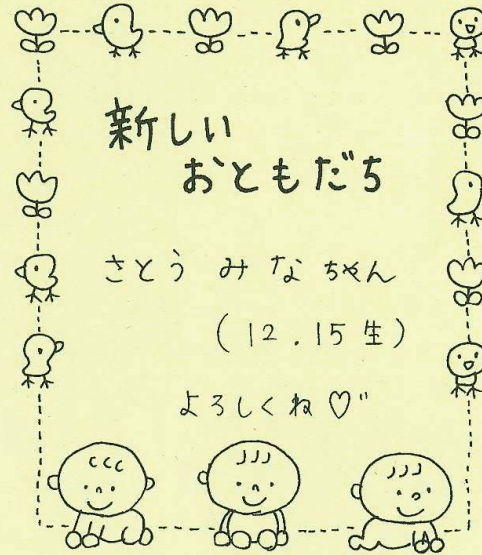 新しい
おともだち
さとう みなちゃん
(12.15生)
よろしくね♡"